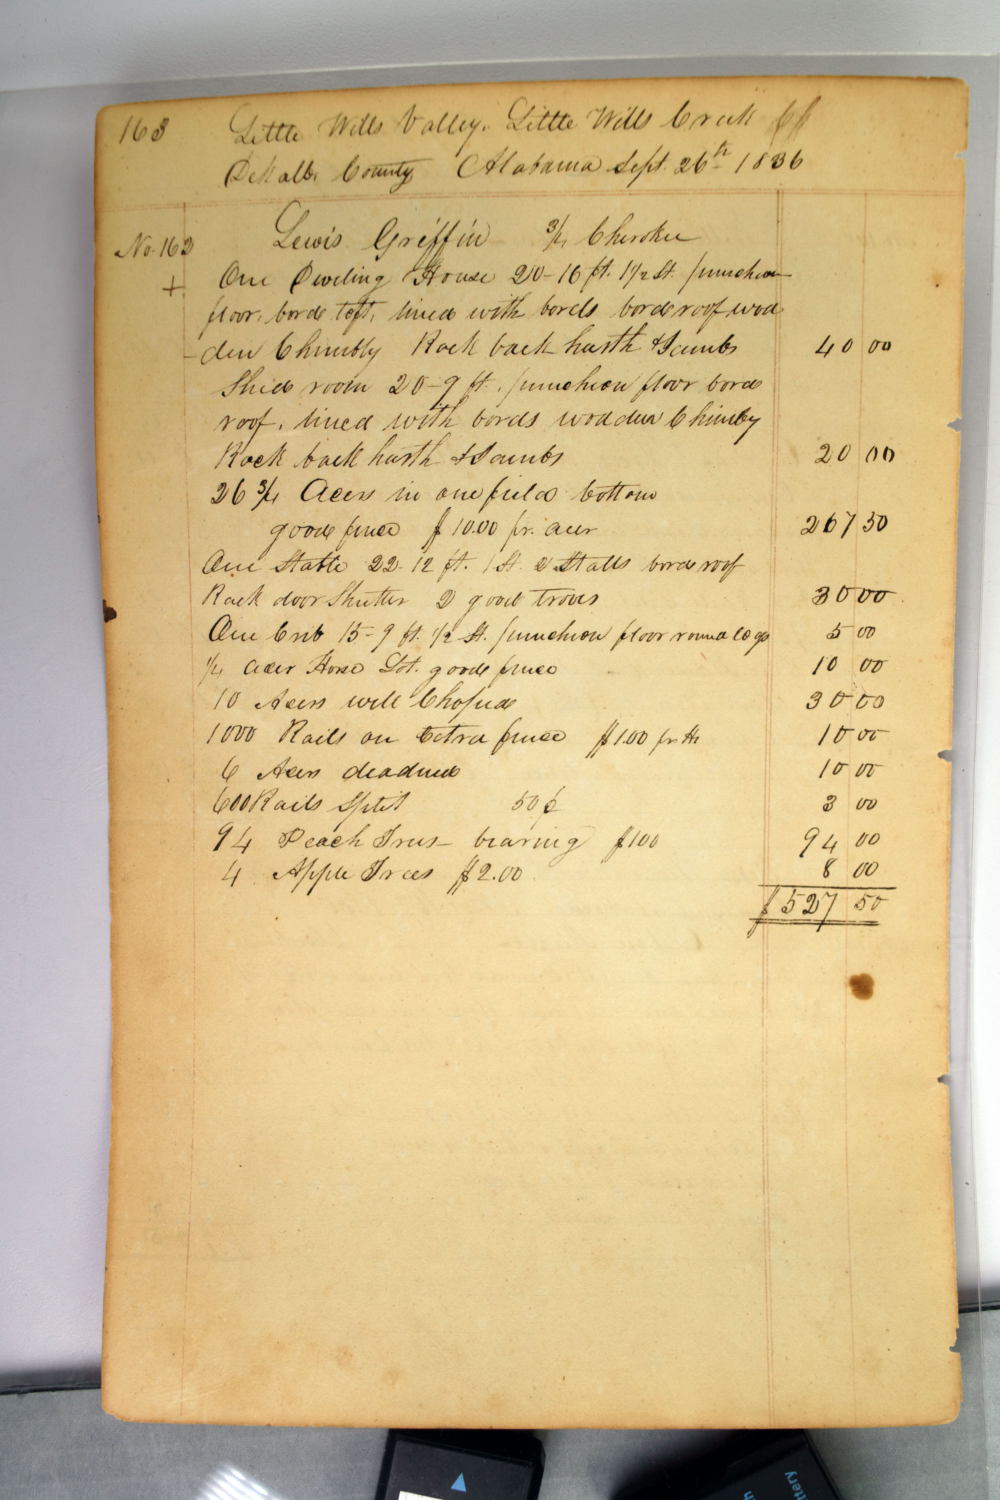 163 Little Wills Valley. Little Wills Creek
DeKalb County Alabama Sept. 26th 1836
No. 162 Lewis Griffin 3/4 Cherokee
+ One Dwelling House 20-16 ft. 1 1/2 St. puncheon
floor, bords loft, lined with bords bords roof wod
den Chimbly Rock back harth & Jambs 40 00
Shied room 20-9 ft. puncheon floor bords
roof, lined with bords wodden Chimbly
Rock back harth & Jambs 20 00
26 3/4 Acers in one field bottom
good fence $10.00 pr. acer 267 50
One Stable 22-12 ft. 1 St. 2 Stalls bords roof
Rack door Shutter 2 good trous 30 00
One Crib 15-9 ft. 1/2 St. puncheon floor round logs 5 00
1/4 acer Horse Lot. good fence 10 00
10 Acers well Choped 30 00
1000 Rails on Extra fence $1.00 pr. H 10 00
6 Acers deadned 10 00
600 Rails Split 50 ¢ 3 00
94 Peach Trees bearing $100 94 00
4 Apple Trees $2.00 8 00
$527 50